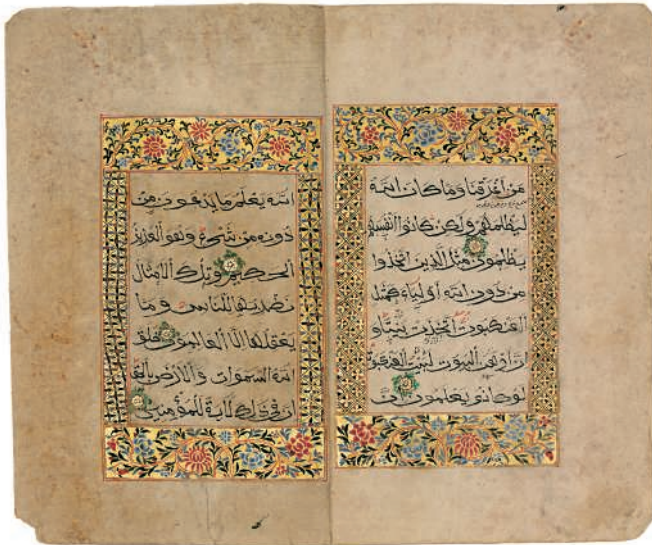 من أغرقنا وما كان الله
ليظلمهم ولكن كانوا أنفسهم
يظلمون مثل الذين اتخذوا
من دون الله أولياء كمثل
العنكبوت اتخذت بيتا و
ان أوهن البيوت لبيت العنكبوت
لو كانوا يعلمون ان
الله يعلم ما يدعون من
دونه من شيء وهو العزيز
الحكيم وتلك الامثال
نضربها للناس وما
يعقلها الا العالمون خلق
الله السموات والارض بالحق
ان في ذلك لآية للمؤمنين